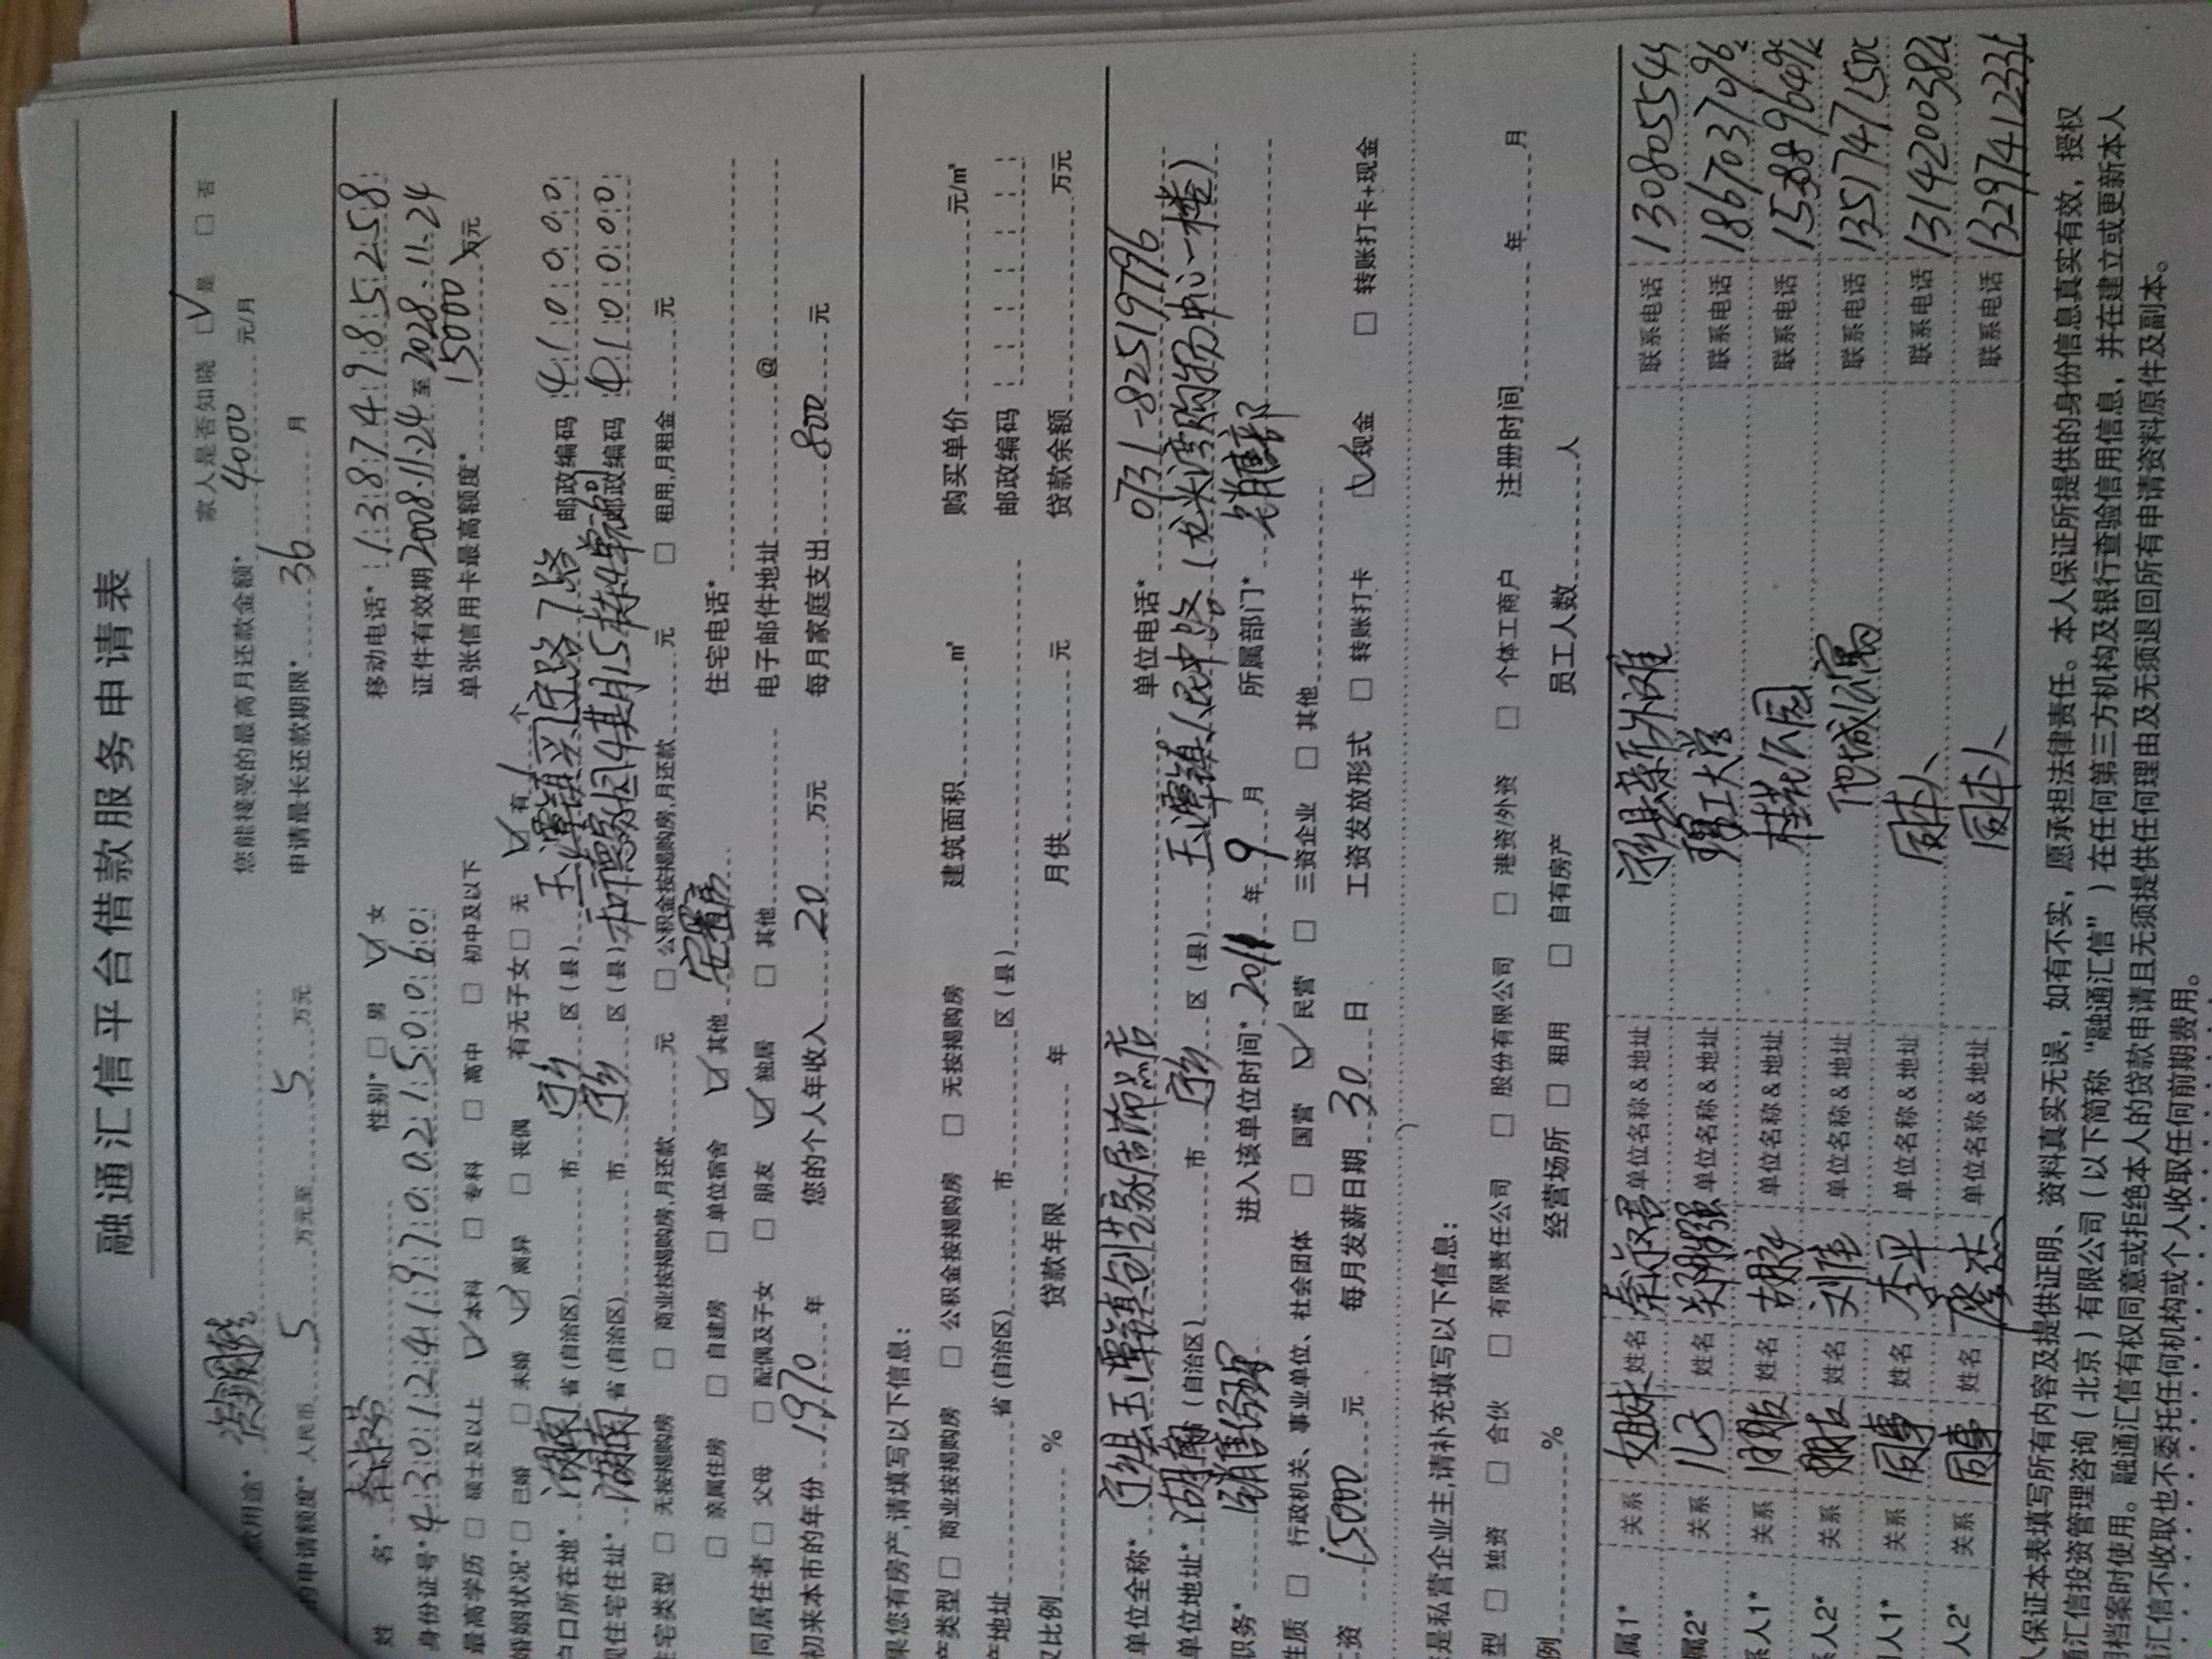 融通汇信平台借款服务申请表
款用途* 资金周转 家人是否知晓 ☑ 是 □ 否
的申请额度* 人民币 5 万元至 5 万元 您能接受的最高月还款金额* 4000 元/月
申请最长还款期限* 36 月
姓 名* 性别* □ 男 ☑ 女 移动电话* 13874985258
身份证号* 430124197002150060 证件有效期 2008.11.24 至 2028.11.24
最高学历 □ 硕士及以上 ☑ 本科 □ 专科 □ 高中 □ 初中及以下 单张信用卡最高额度* 15000 万元
婚姻状况* □ 已婚 □ 未婚 ☑ 离异 □ 丧偶 有无子女 □ 无 ☑ 有 1 个
户口所在地* 湖南 省(自治区) 市 宁乡 区(县) 玉潭镇兴宁路7路 邮政编码 410000
现住宅住址* 湖南 省(自治区) 市 宁乡 区(县) 邮政编码 410000
住宅类型 □ 无按揭购房 □ 商业按揭购房,月还款 元 □ 公积金按揭购房,月还款 元 □ 租用,月租金 元
□ 亲属住房 □ 自建房 □ 单位宿舍 ☑ 其他 安置房 住宅电话*
同居住者 □ 父母 □ 配偶及子女 □ 朋友 ☑ 独居 □ 其他 电子邮件地址 @
初来本市的年份 1970 年 您的个人年收入 20 万元 每月家庭支出 800 元
果您有房产,请填写以下信息:
产类型 □ 商业按揭购房 □ 公积金按揭购房 □ 无按揭购房 建筑面积 ㎡ 购买单价 元/㎡
产地址 省(自治区) 市 区(县) 邮政编码
比例 % 贷款年限 年 月供 元 贷款余额 万元
单位全称* 宁乡县玉潭镇创缘居饰品店 单位电话* 0731-82519796
单位地址* 湖南 省(自治区) 市 宁乡 区(县) 玉潭镇人民中路(龙头湾购物中心一楼)
职务* 销售经理 进入该单位时间* 2011 年 9 月 所属部门* 销售部
性质 □ 行政机关、事业单位、社会团体 □ 国营 ☑ 民营 □ 三资企业 □ 其他
工资 15000 元 每月发薪日期 30 日 工资发放形式 □ 转账打卡 ☑ 现金 □ 转账打卡+现金
是私营企业主,请补充填写以下信息:
型 □ 独资 □ 合伙 □ 有限责任公司 □ 股份有限公司 □ 港资/外资 □ 个体工商户 注册时间 年 月
例 % 经营场所 □ 租用 □ 自有房产 员工人数 人
属1* 关系 姐妹 姓名 单位名称&地址 联系电话 1308055
属2* 关系 儿子 姓名 单位名称&地址 理工大学 联系电话 18670370962
系人1* 关系 朋友 姓名 单位名称&地址 桂花公园 联系电话
人2* 关系 朋友 姓名 刘伟 单位名称&地址 联系电话
人1* 关系 同事 姓名 李平 单位名称&地址 同本人 联系电话
人2* 关系 同事 姓名 单位名称&地址 同本人 联系电话
人保证本表填写所有内容及提供证明、资料真实无误,如有不实,愿承担法律责任。本人保证所提供的身份信息真实有效,授权
通汇信投资管理咨询(北京)有限公司(以下简称“融通汇信”)在任何第三方机构及银行查验信用信息,并在建立或更新本人
用档案时使用。融通汇信有权同意或拒绝本人的贷款申请且无须提供任何理由及无须退回所有申请资料原件及副本。
汇信不收取也不委托任何机构或个人收取任何前期费用。